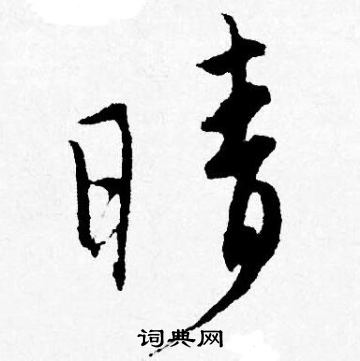 晴
词典网